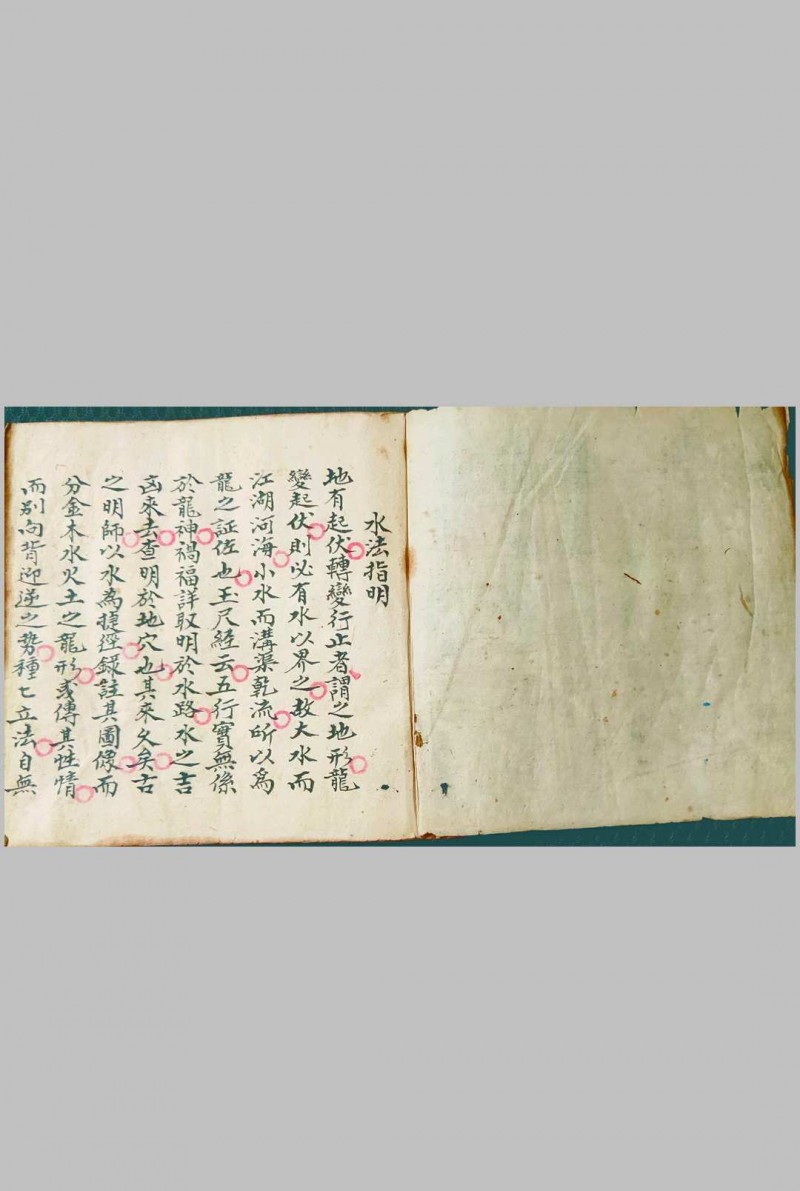 水法指明
地有起伏轉變行止者謂之地形龍
變起伏則必有水以界之故大水而
江湖河海小水而溝渠乾流所以為
龍之証佐也玉尺經云五行實無係
於龍神禍福詳取明於水路水之吉
凶來去查明於地穴也其來久矣古
之明師以水為捷徑錄註其圖像而
分金木水火土之龍形或傳其性情
而別向背迎逆之勢種匕立法自無